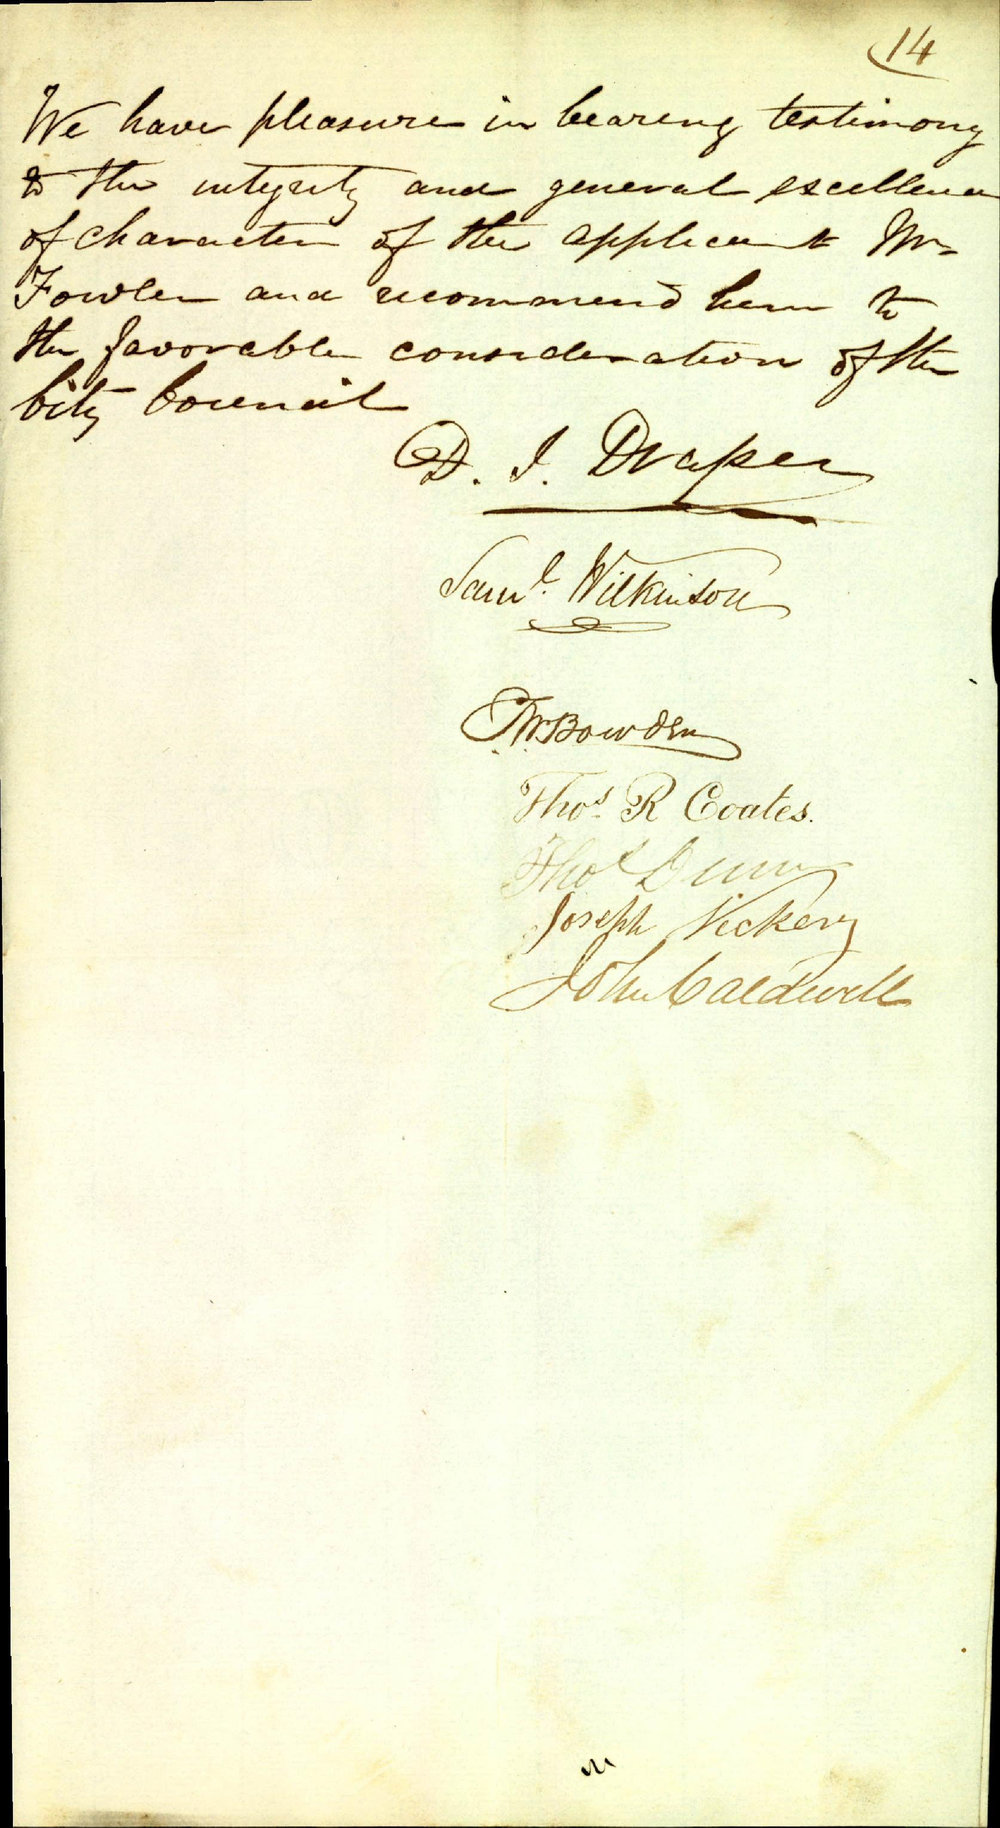 14
We have pleasure in bearing testimony
to the integrity and general excellence
of character of the applicant Mr
Fowler and recommend him to
the favorable consideration of the
City Council
D. J. Draper
Saml. Wilkinson
Bowden
Thos. R Coates.
Thos Dunn
Joseph Vickery
John Caldwell